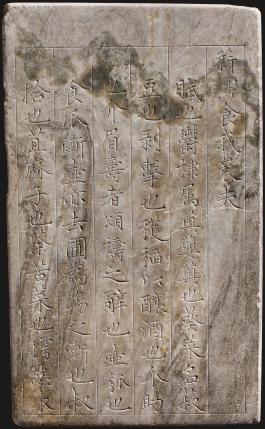 薪樗食我農夫
賦也鬱棣屬薁蘡薁也葵菜名叔
豆也剥擊也穫稻以釀酒也介助
也介眉壽者頌禱之辭也壺瓠也
食瓜斷壺亦去圃為場之漸也叔
拾也苴麻子也荼苦菜也樗惡木